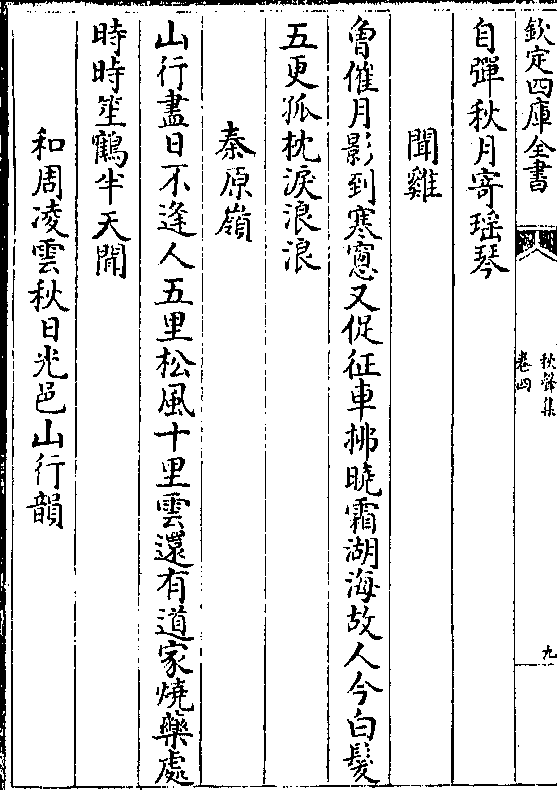 欽定四庫全書
秋聲集
卷四
九
自彈秋月寄瑶琴
聞雞
曾催月影到寒窻又促征車拂曉霜湖海故人今白髮
五更孤枕淚浪浪
秦原嶺
山行盡日不逢人五里松風十里雲還有道家燒藥處
時時笙鶴半天聞
和周凌雲秋日光邑山行韻